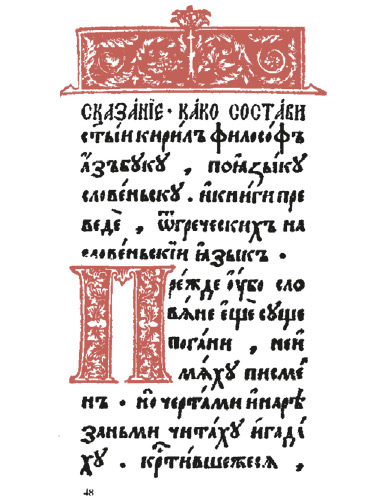 СКАЗА́НЇЕ · КА́КО СОСТА́ВИ
ст҃ы́и кири́лъ ф̾илосо́фъ
а҆́збуку , поꙗ҆зы́ку
слове́ньску . и҆кни́ги пре
ведѐ , ѿгре́ческихъ на
слове́ньскїи ꙗ҆зы́къ .
Пре́жде ᲂу҆́бо сло
вѧ́не є҆щѐ су́ще
пога́ни , неи
мѧ́ху писме́
нъ . но̀ черта́ми и҆нарѣ́
заньми чита́ху и҆гадї
ху . кр҃ти́вшежесѧ ,
48